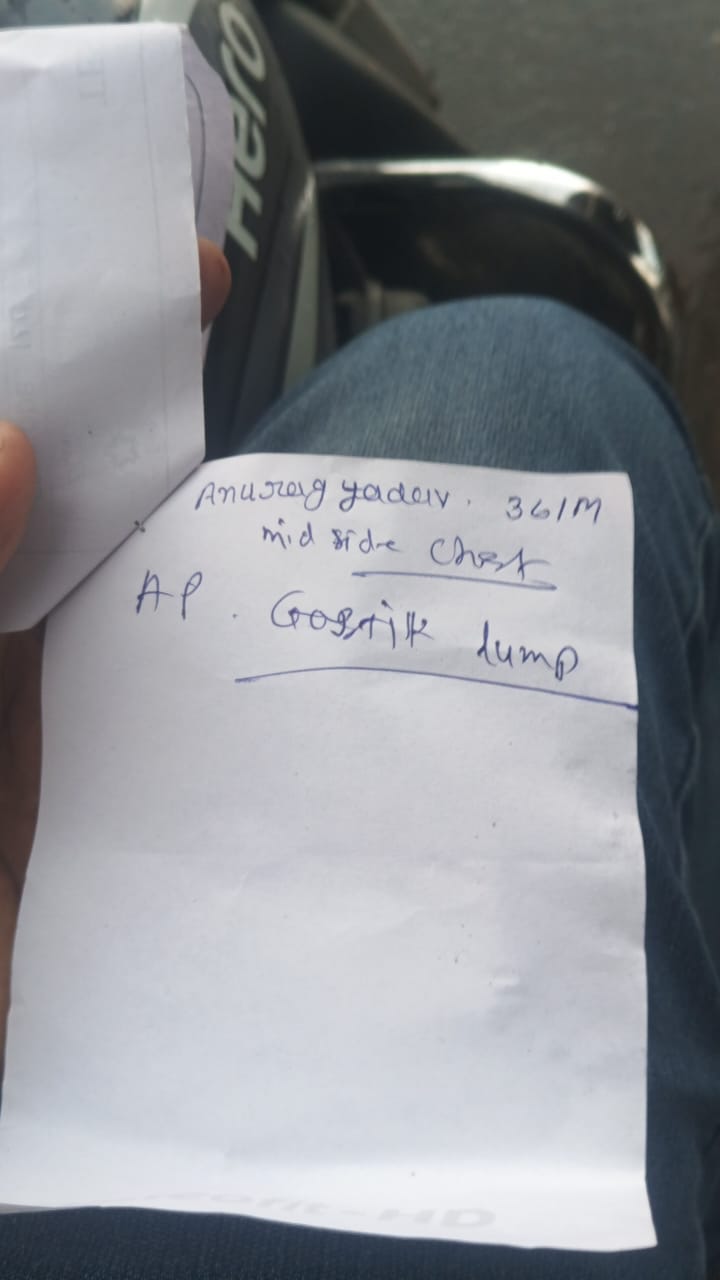 Hero
Anurag yadav. 36/M
mid side Chest
AP. Gostik lump